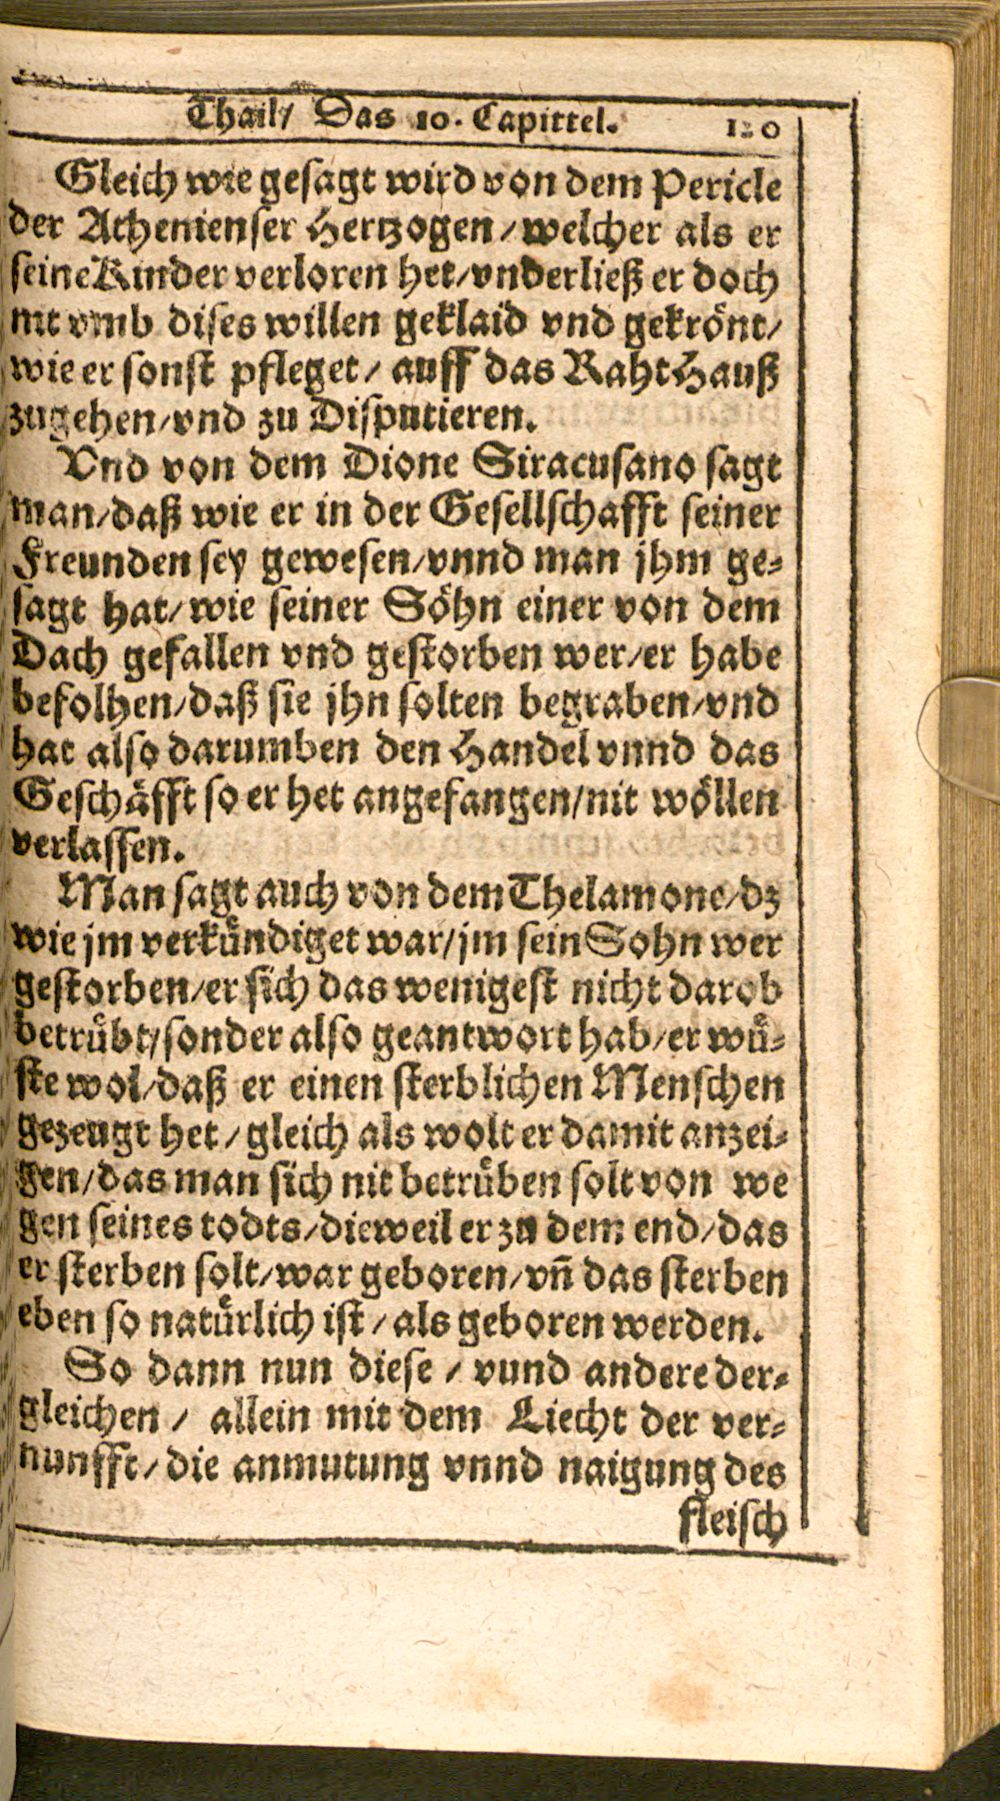 Thail/ Das 10. Capittel. 120
Gleich wie gesagt wird von dem Pericle
der Athenienser Hertzogen/welcher als er
seine Kinder verloren het/vnderließ er doch
nit vmb dises willen geklaid vnd gekrönt/
wie er sonst pfleget/ auff das Raht Hauß
zugehen/vnd zu Disputieren.
Vnd von dem Dione Siracusano sagt
man/daß wie er in der Gesellschafft seiner
Freunden sey gewesen/vnnd man jhm ge-
sagt hat/wie seiner Söhn einer von dem
Dach gefallen vnd gestorben wer/er habe
befolhen/daß sie jhn solten begraben/vnd
hat also darumben den Handel vnnd das
Geschäfft so er het angefangen/nit wöllen
verlassen.
Man sagt auch von dem Thelamone/dz
wie jm verkündiget war/jm sein Sohn wer
gestorben/er sich das wenigest nicht darob
betrübt/sonder also geantwort hab/er wü-
ste wol/daß er einen sterblichen Menschen
gezeugt het/gleich als wolt er damit anzei-
gen/das man sich nit betrüben solt von we
gen seines todts/dieweil er zu dem end/das
er sterben solt/war geboren/vñ das sterben
eben so natürlich ist/als geboren werden.
So dann nun diese/ vund andere der-
gleichen/ allein mit dem Liecht der ver-
nunfft/die anmutung vnnd naigung des
fleisch